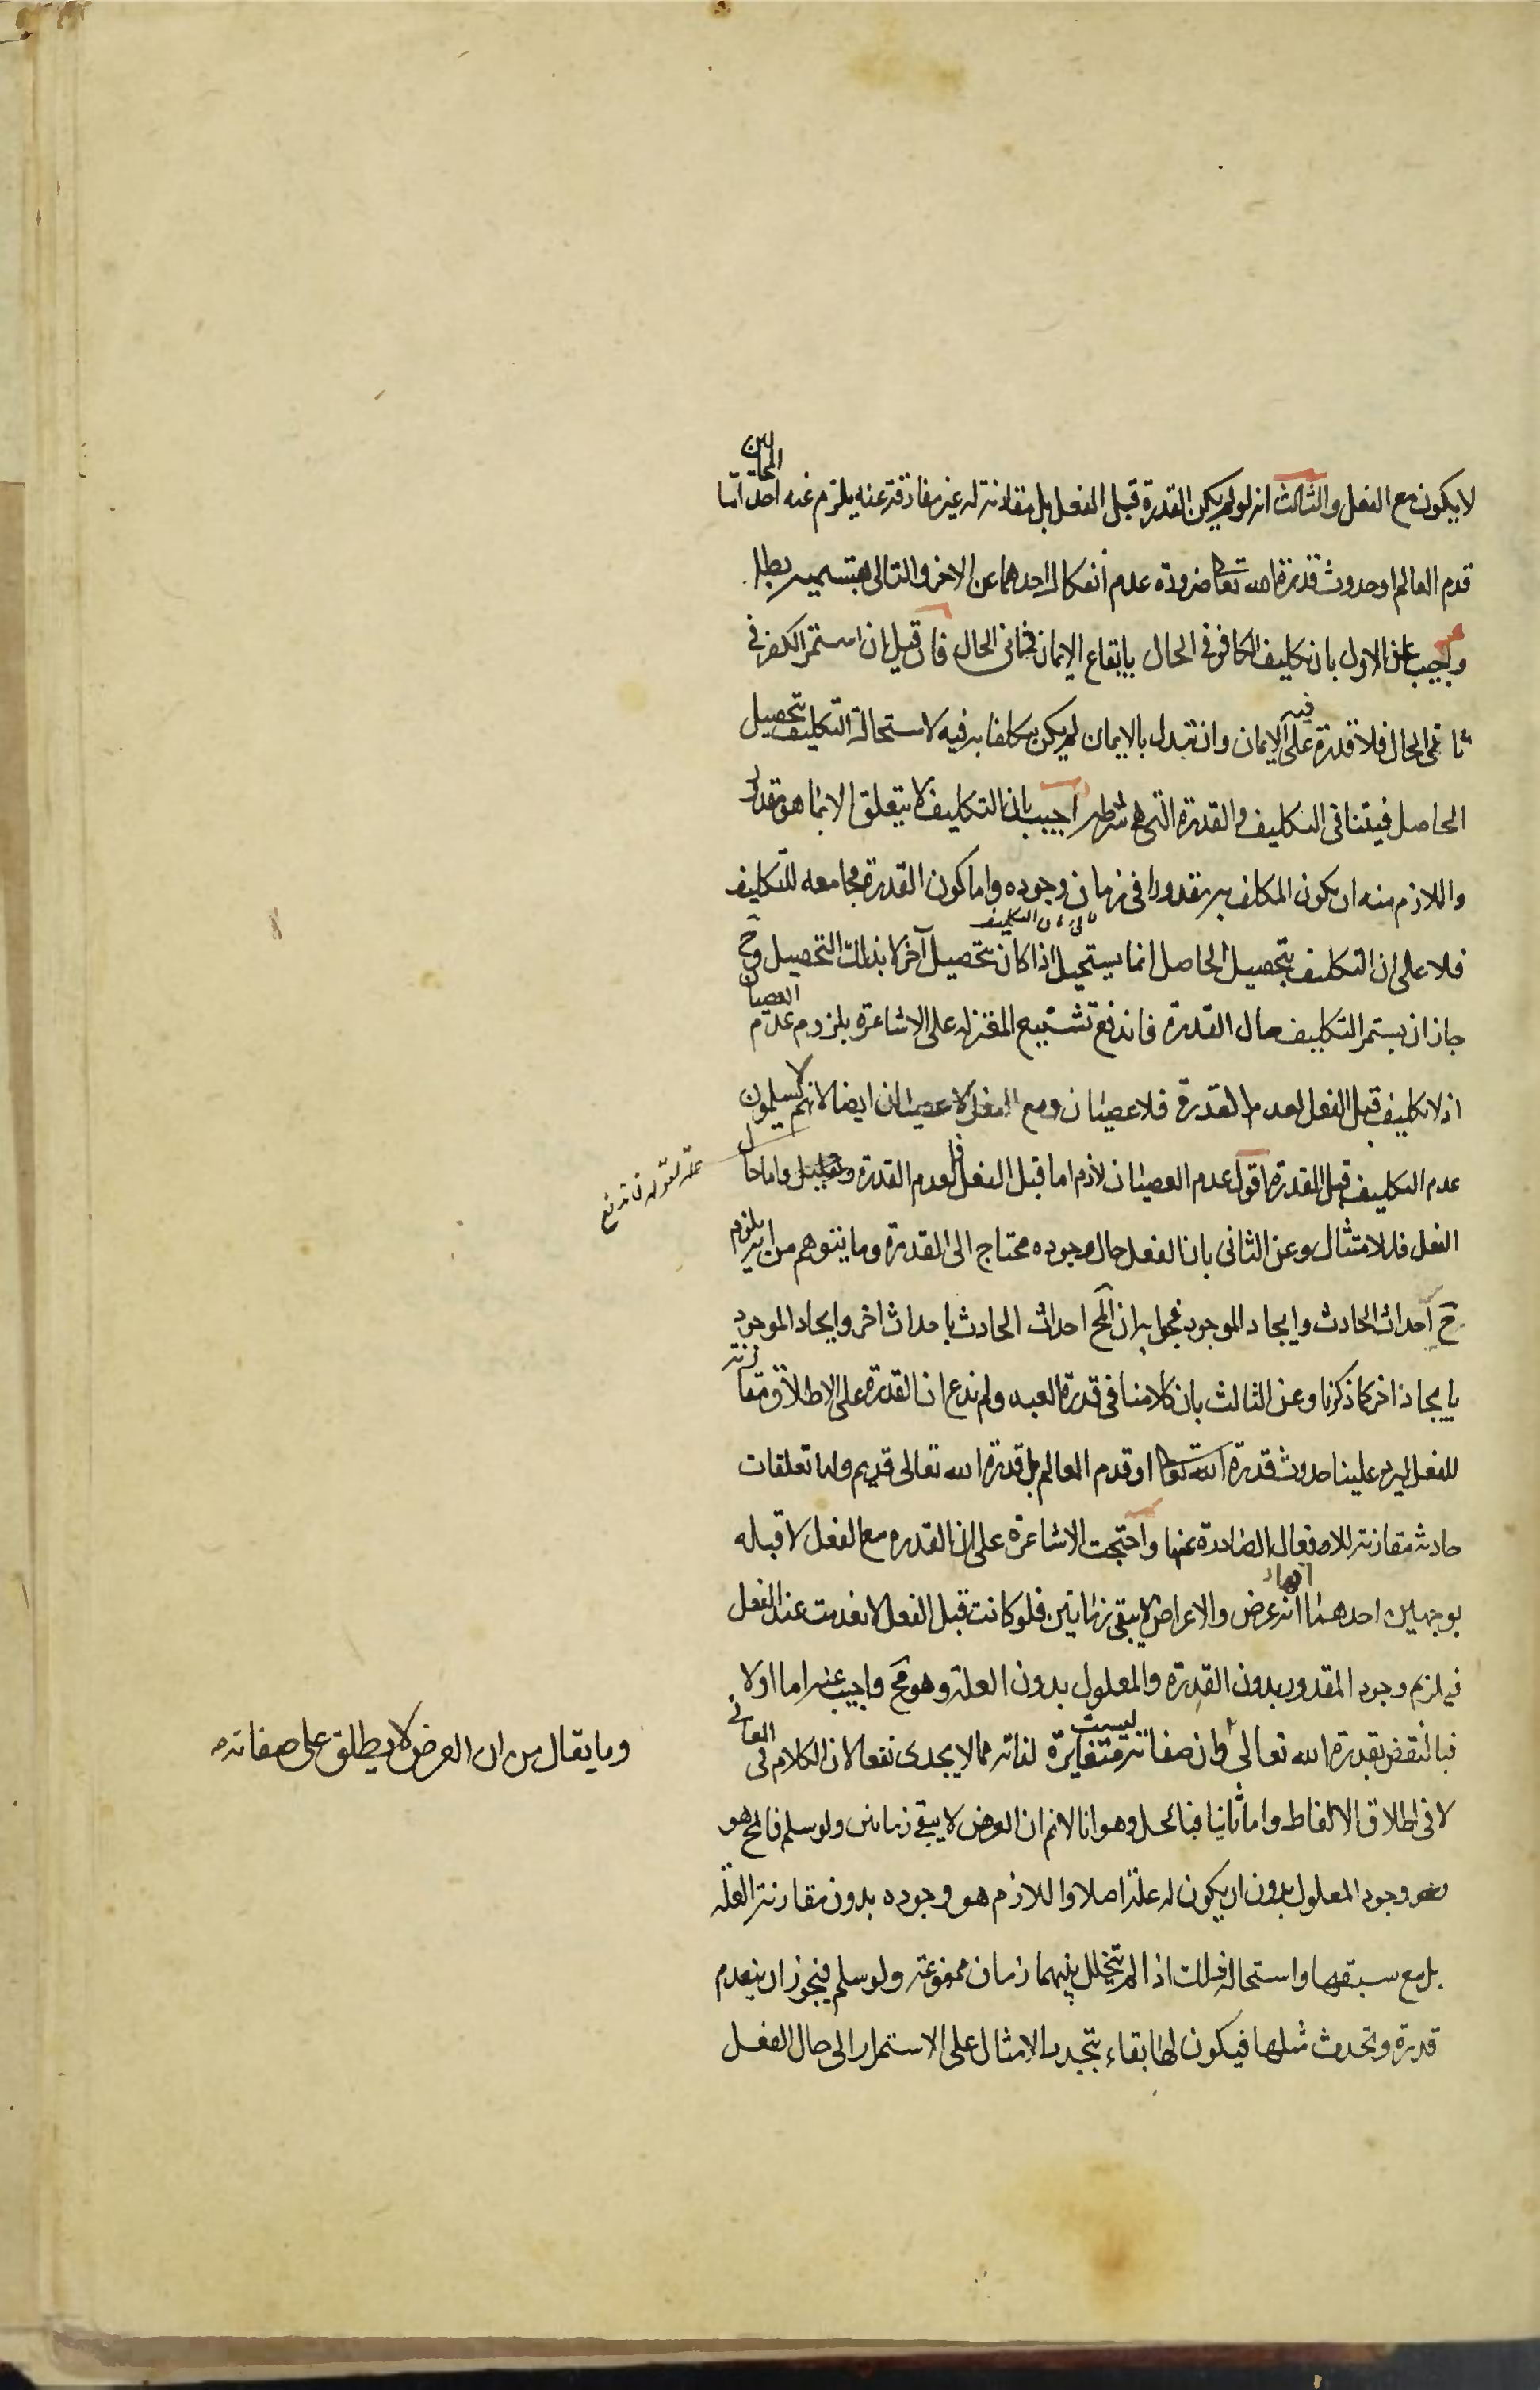 لا يكون مع الفعل والثالث انه لو لم يكن القدرة قبل الفعل بل مقارنة له غير مفارقة عنه يلزم عنه احد المحالين اما
قدم العالم او حدوث قدرة الله تعا ضرورة عدم انفكاك احدهما عن الاخر والتالى بقسميه بط
واجيب عن الاول بان تكليف الكافر فى الحال بايقاع الايمان فى ثانى الحال فان قيل ان استمر الكفر فى
ثانى الحال فلا قدرة فيه على الايمان وان تبدل بالايمان لم يكن مكلفا به فيه لاستحالة التكليف بتحصيل
الحاصل فيتنافى التكليف والقدرة التى هى شرطه اجيب بان التكليف لا يتعلق الا بما هو مقدور
واللازم منه ان يكون المكلف به مقدورا فى زمان وجوده واما كون القدرة مجامعه للتكليف
فلا على ان التكليف بتحصيل الحاصل انما يستحيل اذا كان بتحصيل آخر لا بذلك التحصيل وح
جاز ان يستمر التكليف حال القدرة فاندفع تشنيع المعتزله على الاشاعرة بلزوم عدم العصيان
اذ لا تكليف قبل الفعل لعدم القدرة فلا عصيان ومع الفعل لا عصيان ايضا لانهم لا يسلمون
عدم التكليف قبل القدرة اقول عدم العصيان لازم اما قبل الفعل فلعدم القدرة واما حال
علة لقوله فاندفع
الفعل فللامتثال وعن الثانى بان الفعل حال وجوده محتاج الى القدرة وما يتوهم من انه يلزم
ح احداث الحادث وايجاد الموجود فجوابه ان المح احداث الحادث باحداث اخر وايجاد الموجود
بايجاد اخر كما ذكرنا وعن الثالث بان كلامنا فى قدرة العبد ولم ندع ان القدرة على الاطلاق مقارنة
للفعل ليرد علينا حدوث قدرة الله تعا او قدم العالم بل قدرة الله تعالى قديم ولها تعلقات
حادثه مقارنة للافعال الصادرة عنها واحتجت الاشاعرة على ان القدره مع الفعل لا قبله
بوجهين احدهما انها عرض والاعراض لا يبقى زمانين فلو كانت قبل الفعل لانعدمت عند الفعل
فيلزم وجود المقدور بدون القدرة والمعلول بدون العلة وهو مح واجيب عنه اما اولا
فبالنقض بقدرة الله تعالى وان صفاته ليست متغايرة لذاته مما لا يجدى نفعا لان الكلام فى المعانى
وما يقال من ان العرض لا يطلق على صفاته
لا فى اطلاق الالفاظ واما ثانيا فبالحل وهو انا لا نم ان العرض لا يبقى زمانين ولو سلم فالمح هو
هو وجود المعلول بدون ان يكون له علة اصلا واللازم هو وجوده بدون مقارنة العلة
بل مع سبقها واستحالة ذلك اذا لم يتخلل بينهما زمان ممنوعة ولو سلم فيجوز ان ينعدم
قدرة وتحدث مثلها فيكون لها بقاء بتجدد الامثال على الاستمرار الى حال الفعل